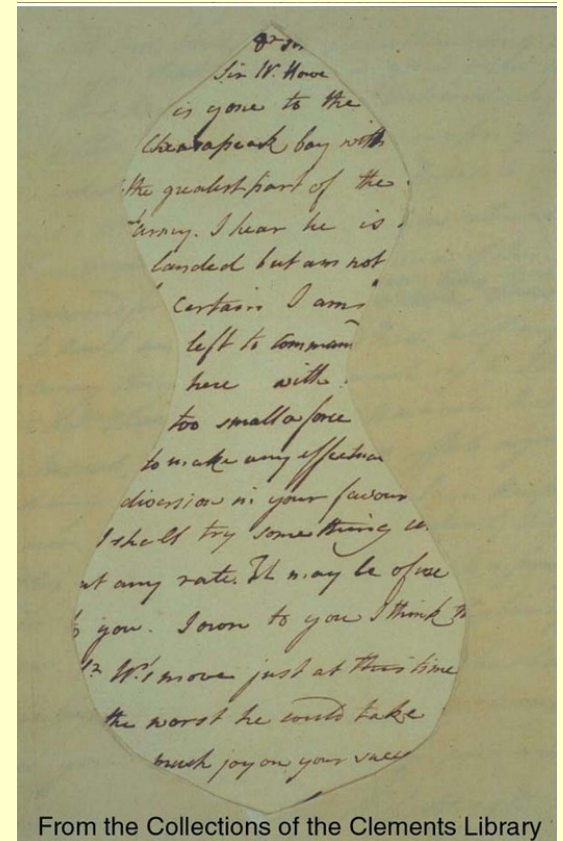 Dr Sir
Sir W. Howe
is gone to the
Chesapeak bay with
the greatest part of the
army. I hear he is
landed but am not
certain I am
left to comman
here with
too small a force
to make any effectua
diversion in your favour
I shall try something
at any rate. It may be of use
to you. I own to you I think
Sr W's move just at this time
the worst he could take
much joy on your succe
From the Collections of the Clements Library